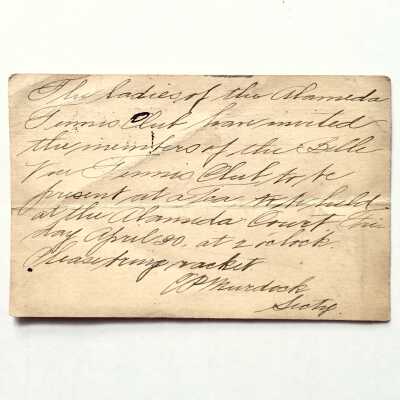 The ladies of the Alameda
Tennis Club han invited
the members of the Belle
Vue Tennis Club to be
present at a Tea to be held
at the Alameda Court
day April 20. at 2 oclock
Please bring racket
C P Murdock
Secty.